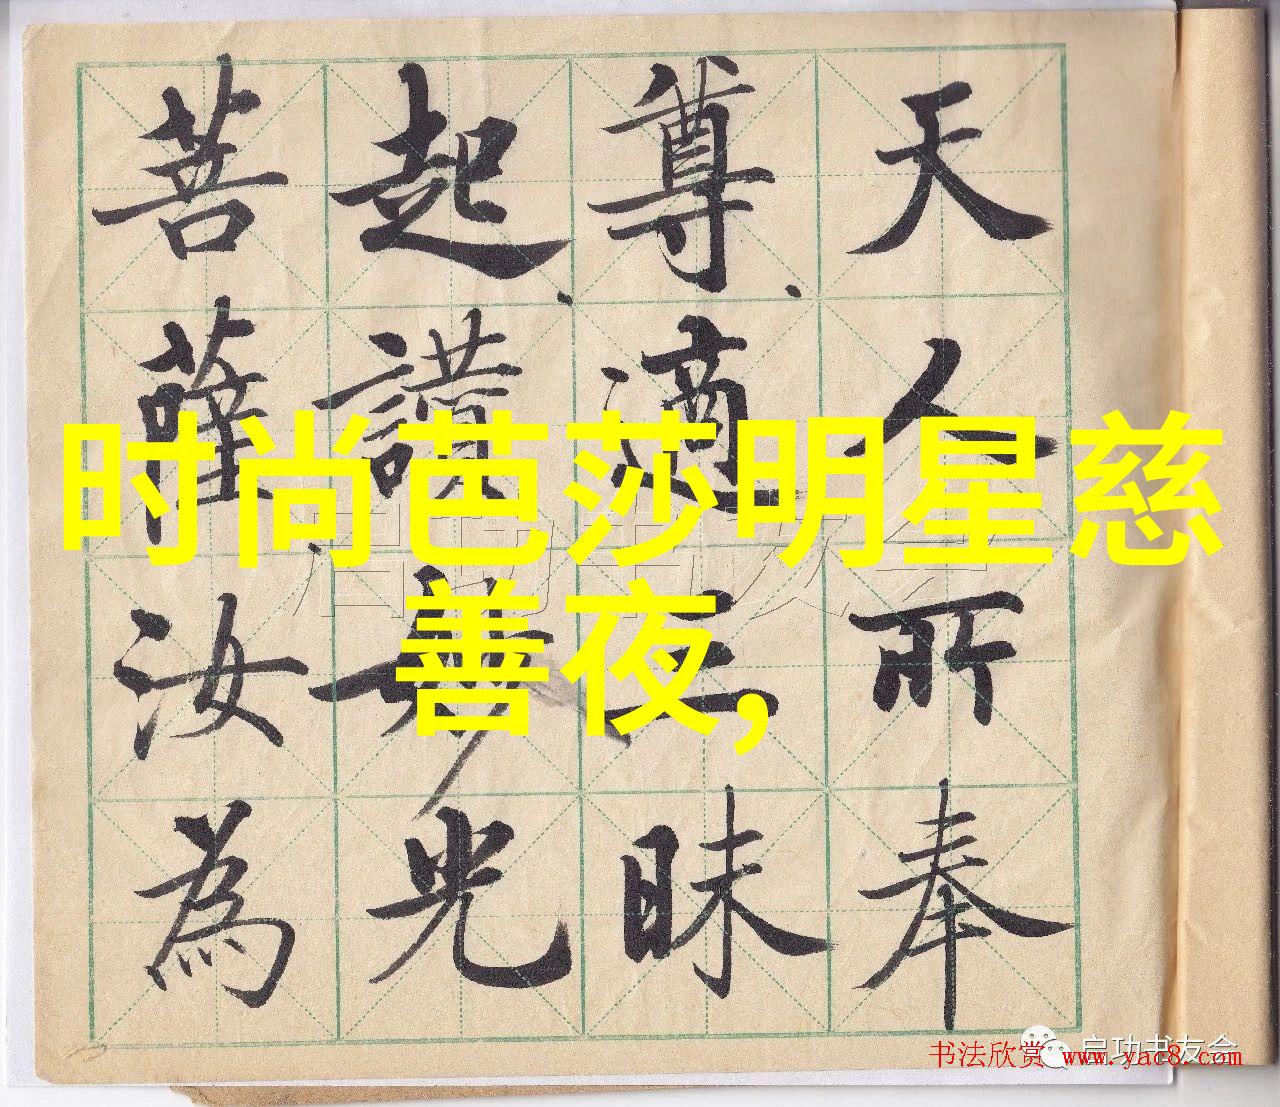 天人所奉
尊、適三昧
起、讚妙光
菩薩汝為
时尚芭莎明星慈
善夜,
启功书友会
启功书友会
书法欣赏 www.yac8.com